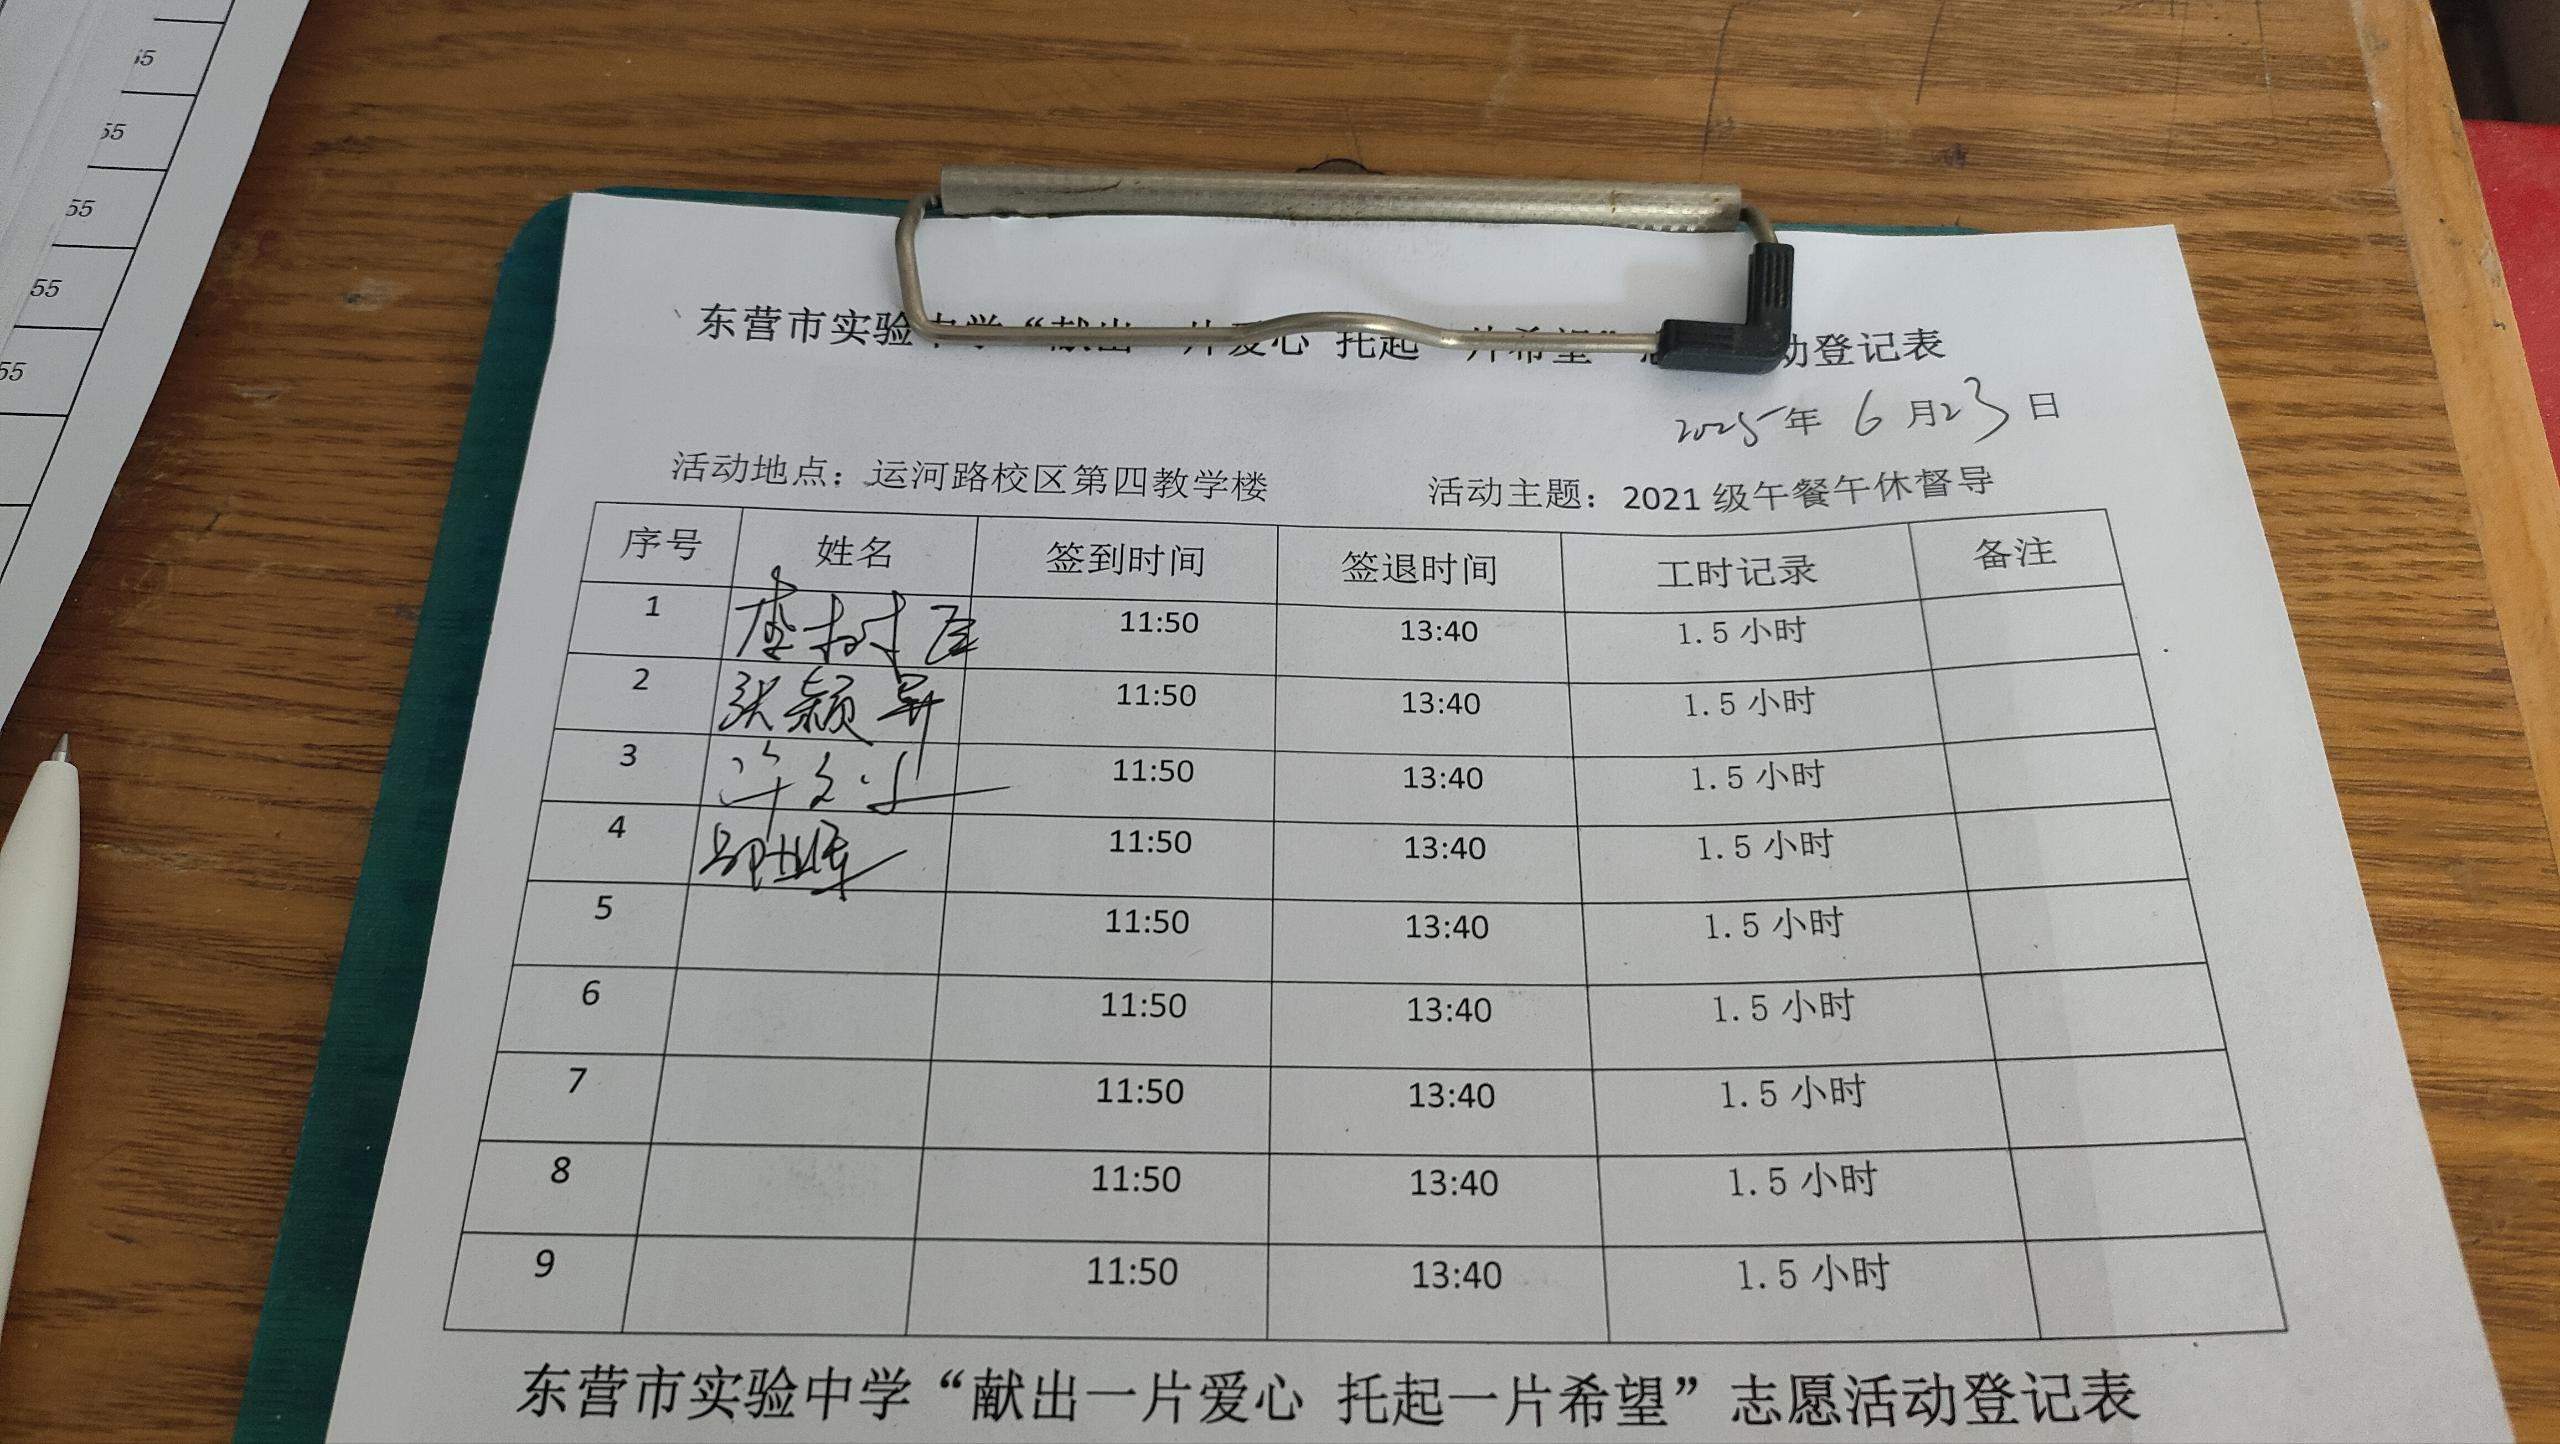 55
55
55
55
55
东营市实验中学“献出一片爱心 托起一片希望”志愿活动登记表
2025年 6月23日
活动地点：运河路校区第四教学楼 活动主题：2021级午餐午休督导
序号 姓名 签到时间 签退时间 工时记录 备注
1 11:50 13:40 1.5小时
2 张颖异 11:50 13:40 1.5小时
3 11:50 13:40 1.5小时
4 11:50 13:40 1.5小时
5 11:50 13:40 1.5小时
6 11:50 13:40 1.5小时
7 11:50 13:40 1.5小时
8 11:50 13:40 1.5小时
9 11:50 13:40 1.5小时
东营市实验中学“献出一片爱心 托起一片希望”志愿活动登记表